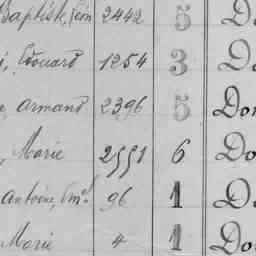 Baptiste, Léon 2442 5 D
Édouard 1254 3 D
Armand 2396 5 Do
Marie 2551 6 Do
Antoine, Émˡᵉ 96 1 D
Marie 4 1 Do